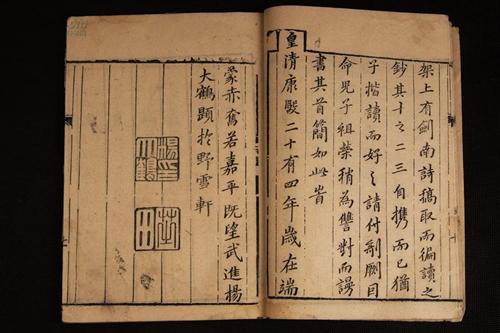 架上有劍南詩稿取而徧讀之
鈔其十之二三自攜而已猶
子楷讀而好之請付剞劂因
命兒子祖榮稍為讐對而謾
書其首簡如此旹
皇清康熙二十有四年歲在端
蒙赤奮若嘉平既望武進楊
大鶴題於野雪軒
楊印大鶴
芝田